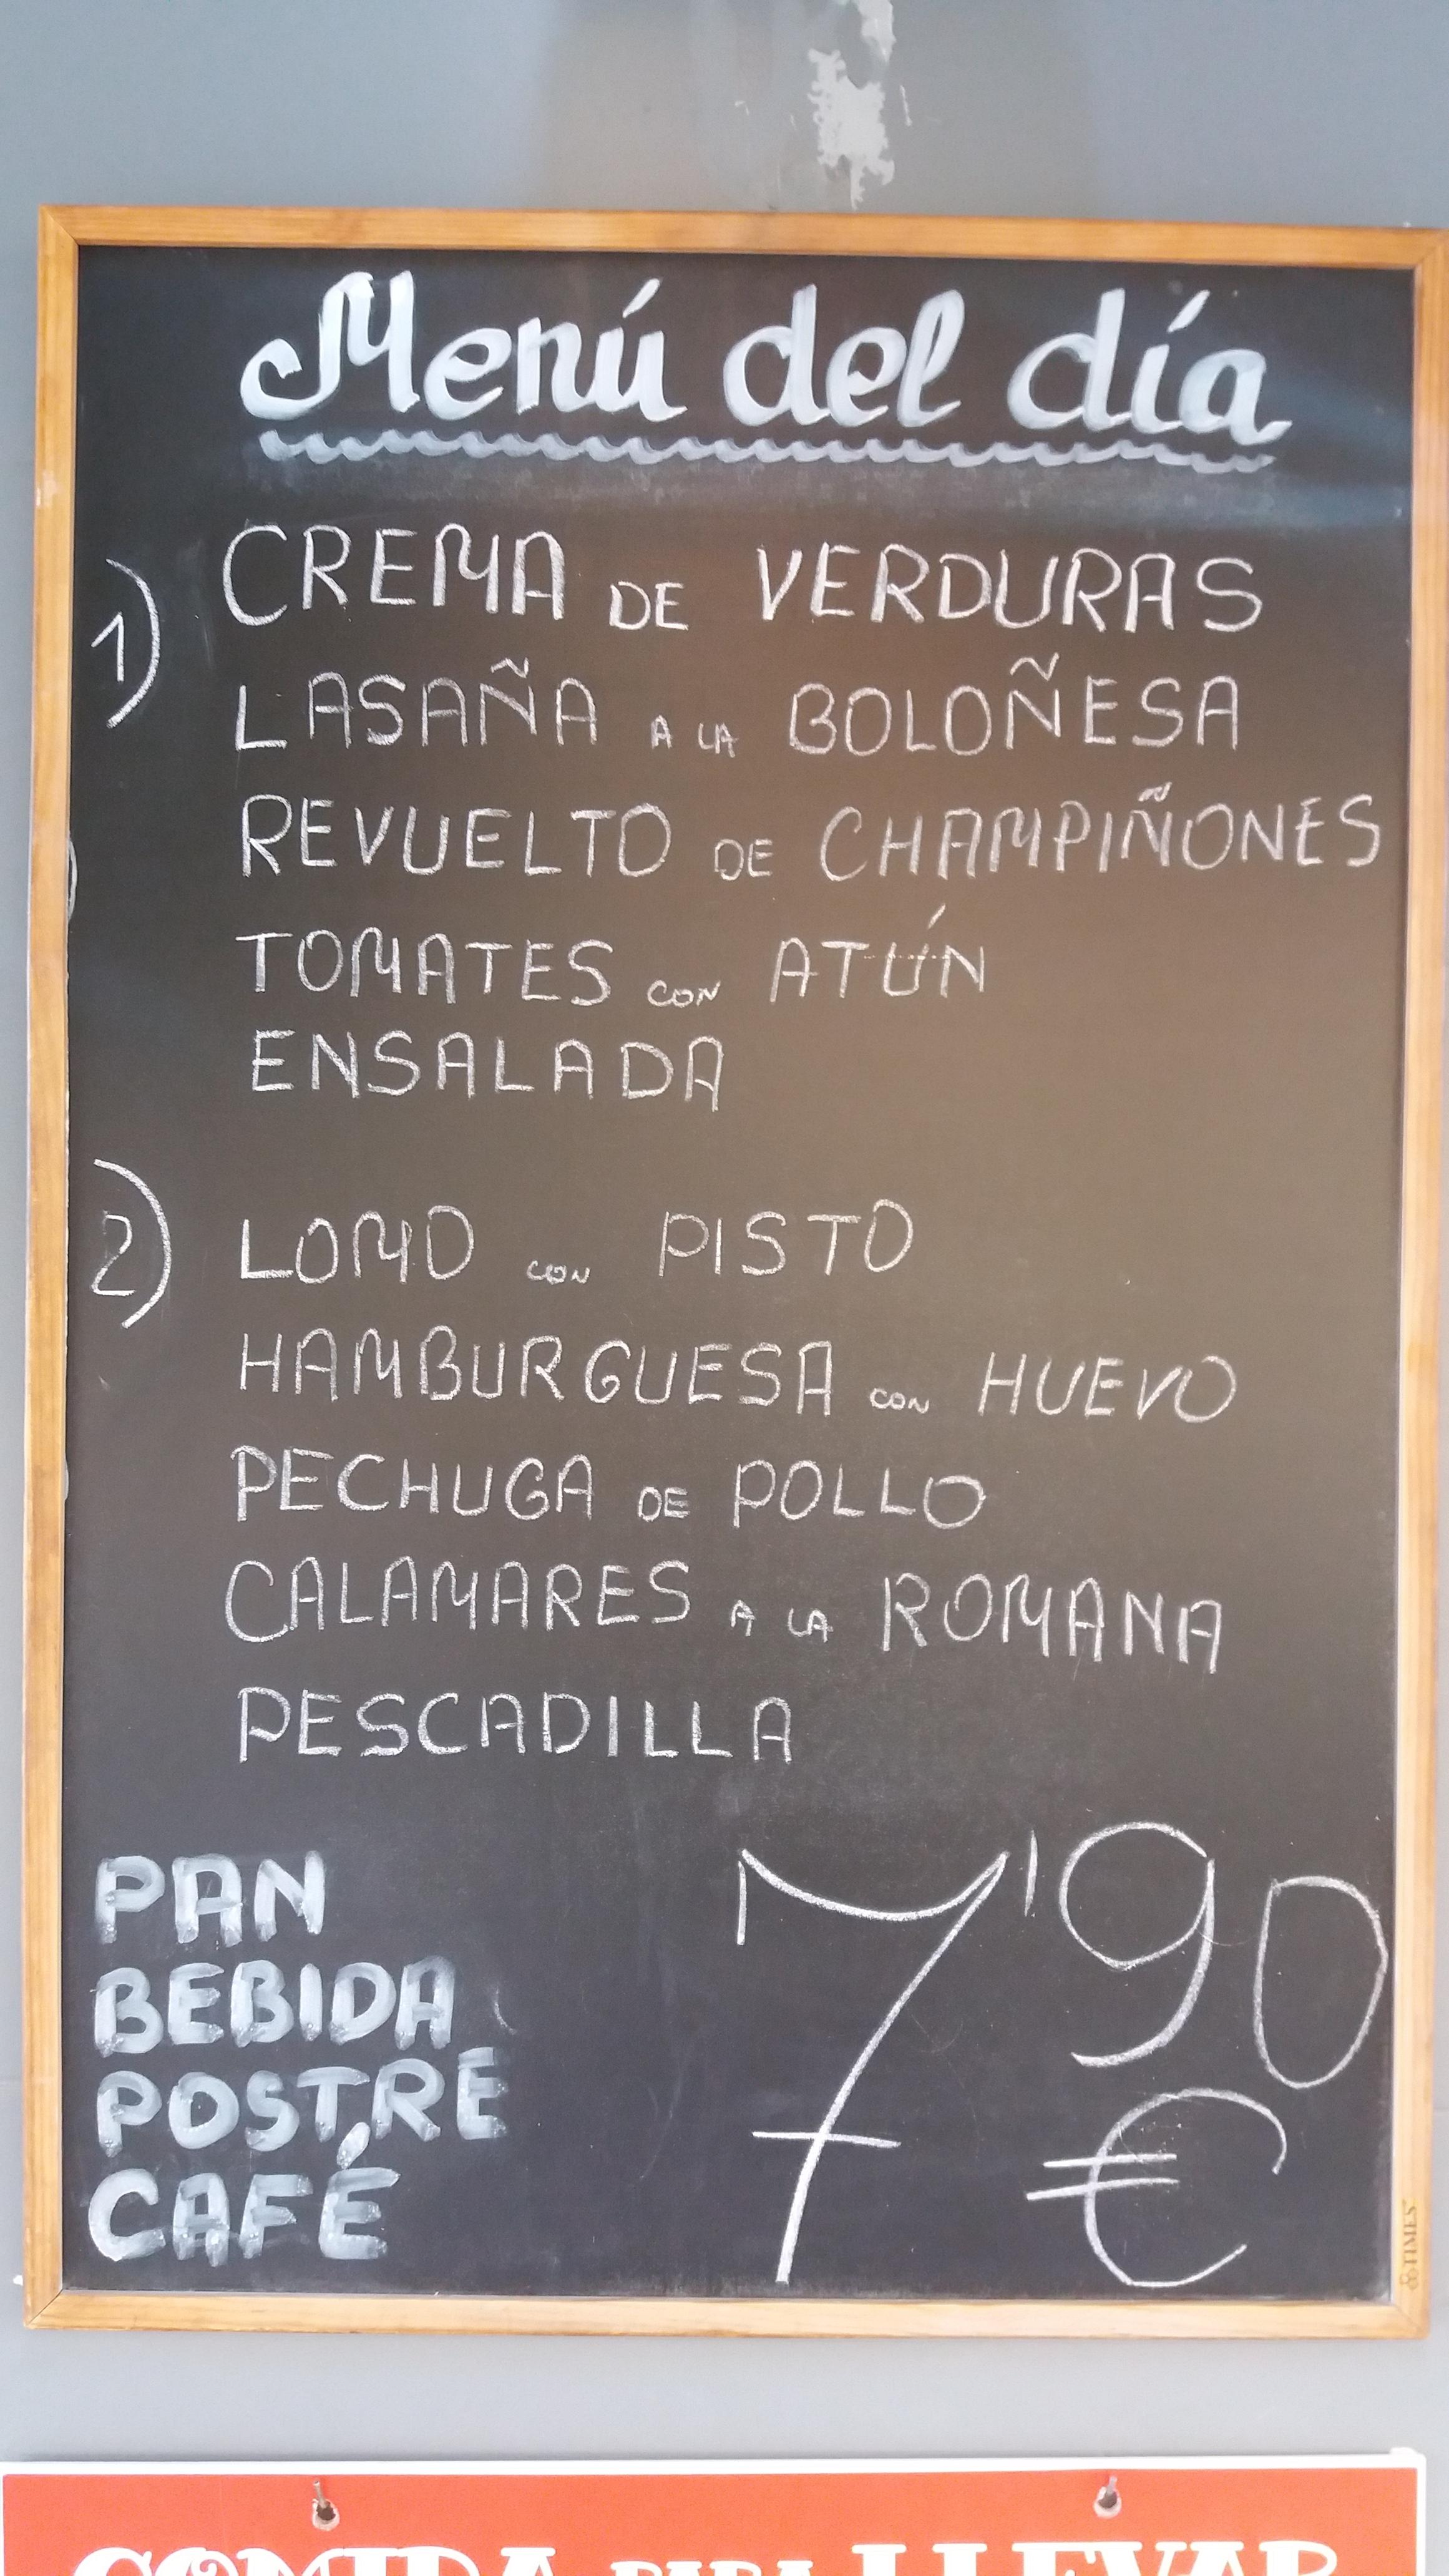 Menú del día
1) CREMA DE VERDURAS
LASAÑA A LA BOLOÑESA
REVUELTO DE CHAMPIÑONES
TOMATES CON ATÚN
ENSALADA
2) LOMO CON PISTO
HAMBURGUESA CON HUEVO
PECHUGA DE POLLO
CALAMARES A LA ROMANA
PESCADILLA
PAN
BEBIDA
POSTRE
CAFÉ
7'90
€
TIMES
COMIDA PARA LLEVAR